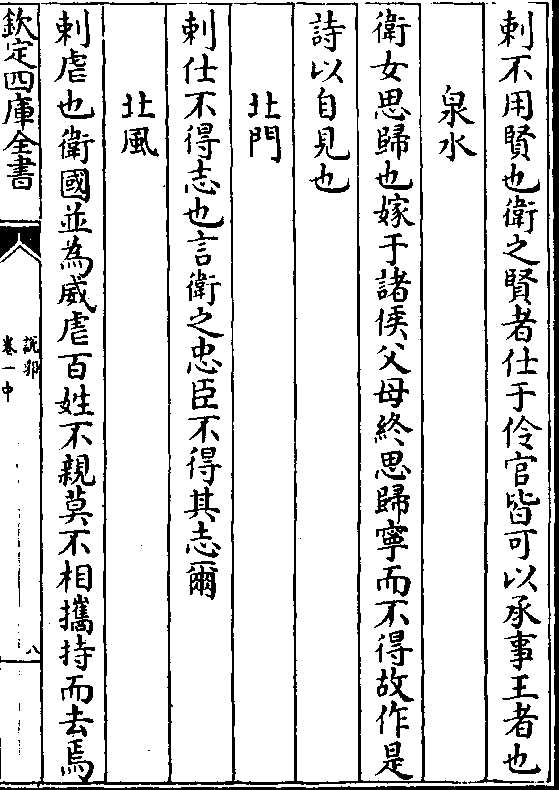 刺不用賢也衛之賢者仕于伶官皆可以承事王者也
泉水
衛女思歸也嫁于諸侯父母終思歸寧而不得故作是
詩以自見也
北門
刺仕不得志也言衛之忠臣不得其志爾
北風
刺虐也衛國並為威虐百姓不親莫不相攜持而去焉
欽定四庫全書
說郛
卷一中
八